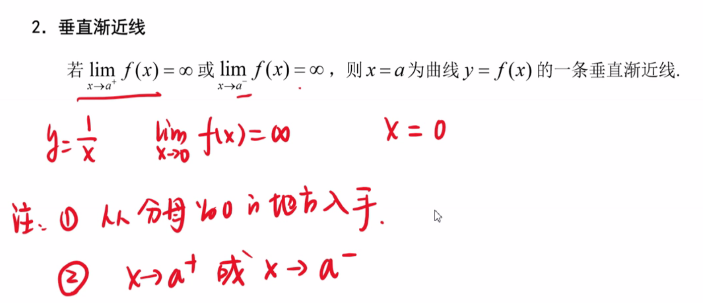 2. 垂直渐近线
若 lim_{x→a⁺} f(x) = ∞ 或 lim_{x→a⁻} f(x) = ∞，则 x = a 为曲线 y = f(x) 的一条垂直渐近线.
y = 1/x lim_{x→0} f(x) = ∞ x = 0
注: ① 从分母为0的地方入手.
② x→a⁺ 或 x→a⁻